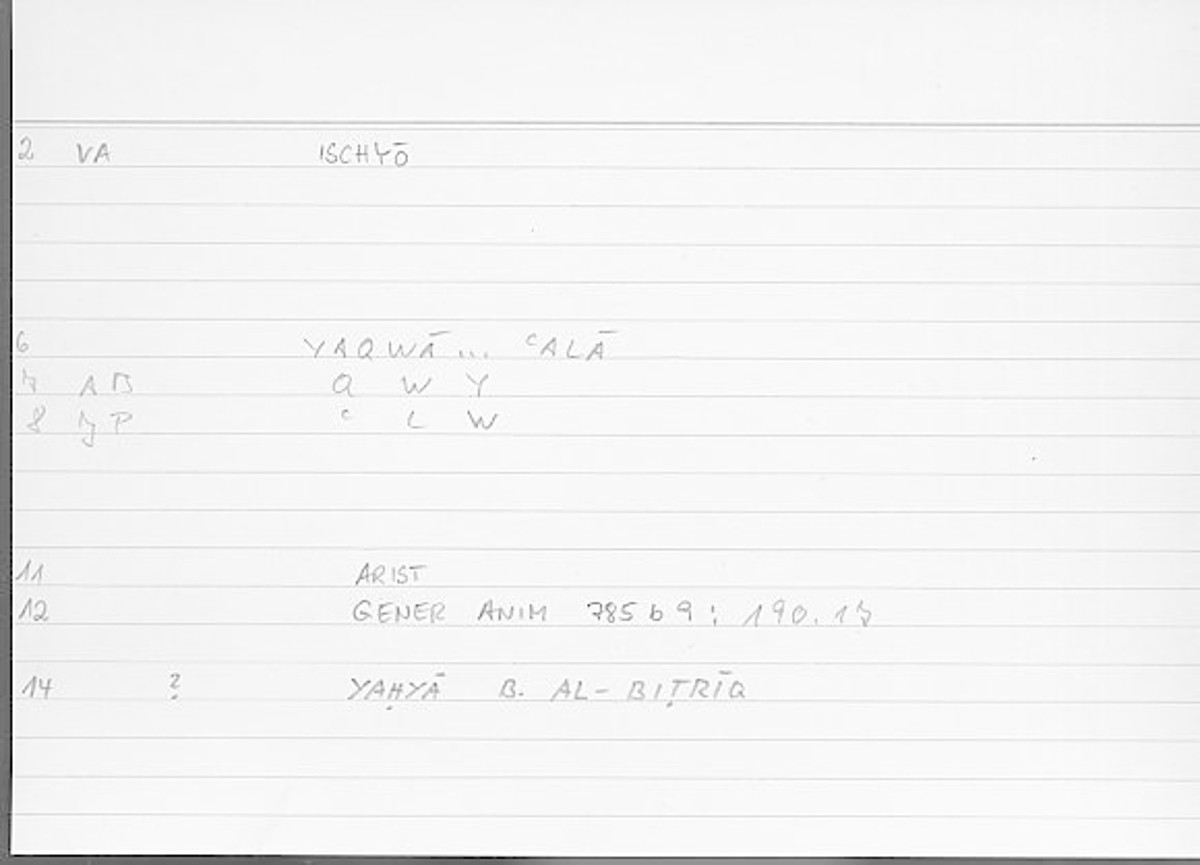 2 VA ISCHYŌ
6 YAQWĀ... ᶜALĀ
7 AB Q W Y
8 JP ᶜ L W
11 ARIST
12 GENER ANIM 785 b 9 : 190.17
14 ? YAḤYĀ B. AL-BIṬRĪQ